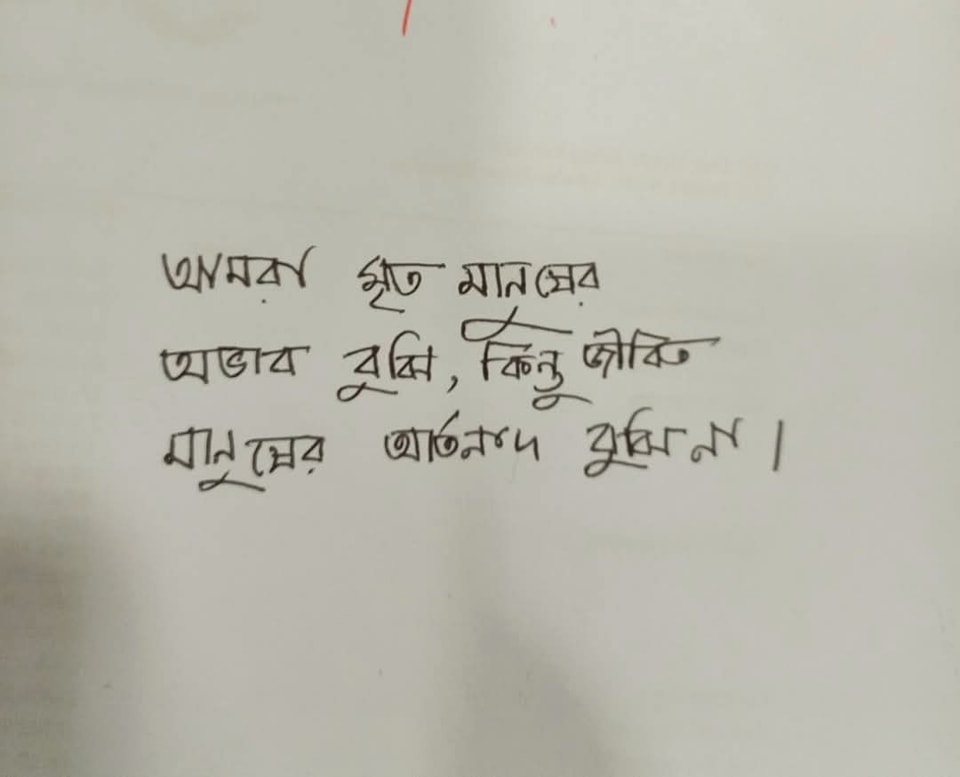 আমরা মৃত মানুষের
অভাব বুঝি, কিন্তু জীবিত
মানুষের আর্তনাদ বুঝিনা।